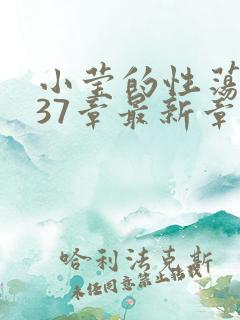 小莹的性荡
37章最新章
哈利法克斯
未经同意禁止转载